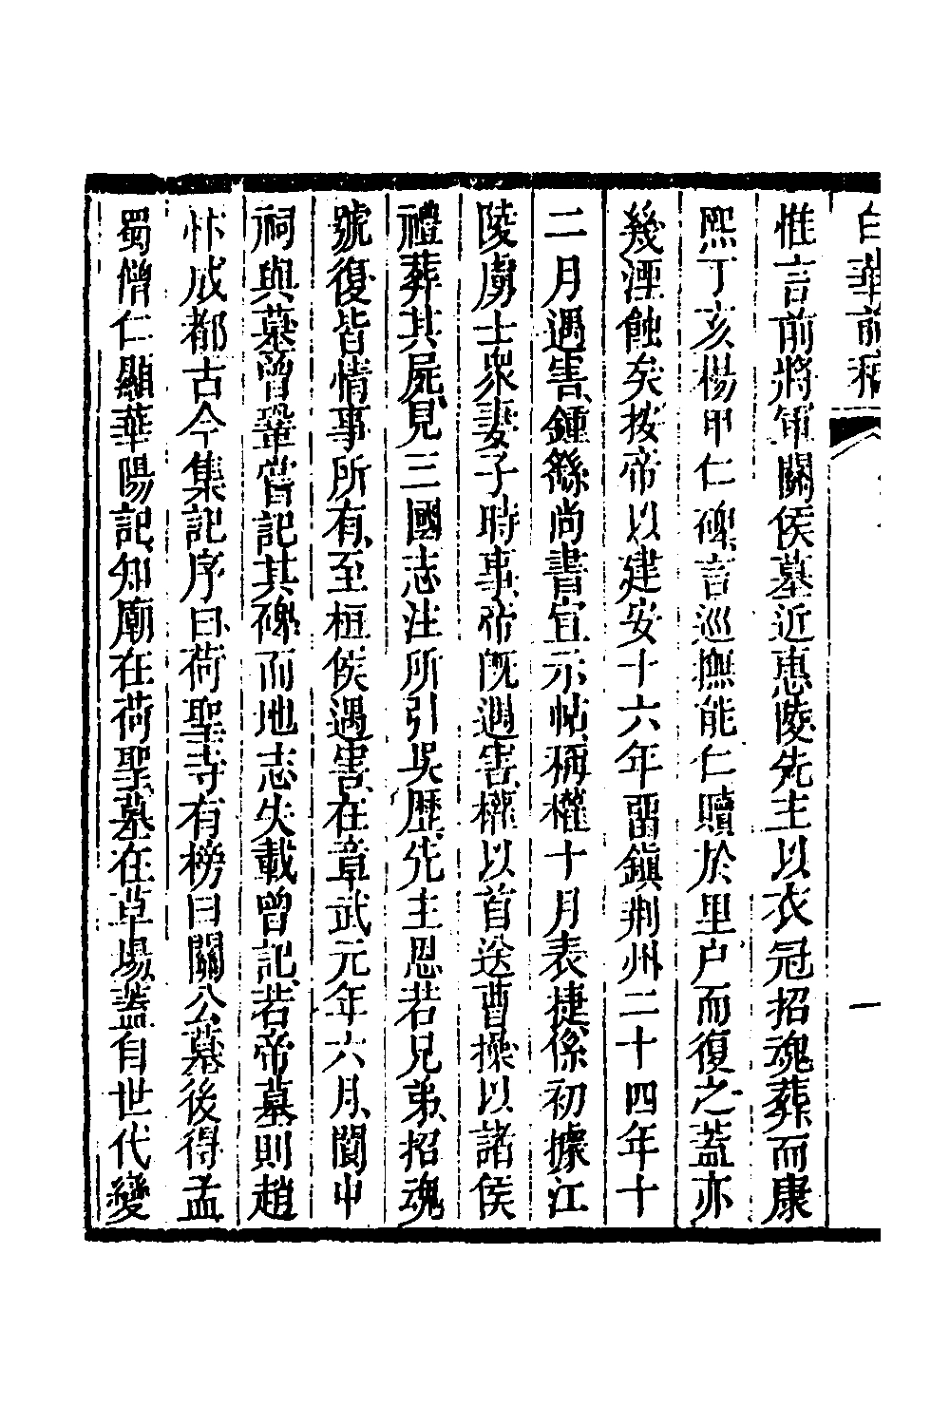 白華前稿
一
惟言前將軍關侯墓近惠陵先主以衣冠招魂葬而康
熙丁亥楊甲仁碑言巡撫能仁贖於里户而復之蓋亦
幾湮蝕矣按帝以建安十六年畱鎭荆州二十四年十
二月遇害鍾繇尚書宣示帖稱權十月表捷係初據江
陵虜士衆妻子時事帝旣遇害權以首送曹操以諸侯
禮葬其屍見三國志注所引吳歴先主恩若兄弟招魂
號復皆情事所有至桓侯遇害在章武元年六月閬中
祠與墓曾鞏嘗記其碑而地志失載曾記若帝墓則趙
忭成都古今集記序曰荷聖寺有榜曰關公墓後得孟
蜀僧仁顯華陽記知廟在荷聖墓在草場蓋自世代變